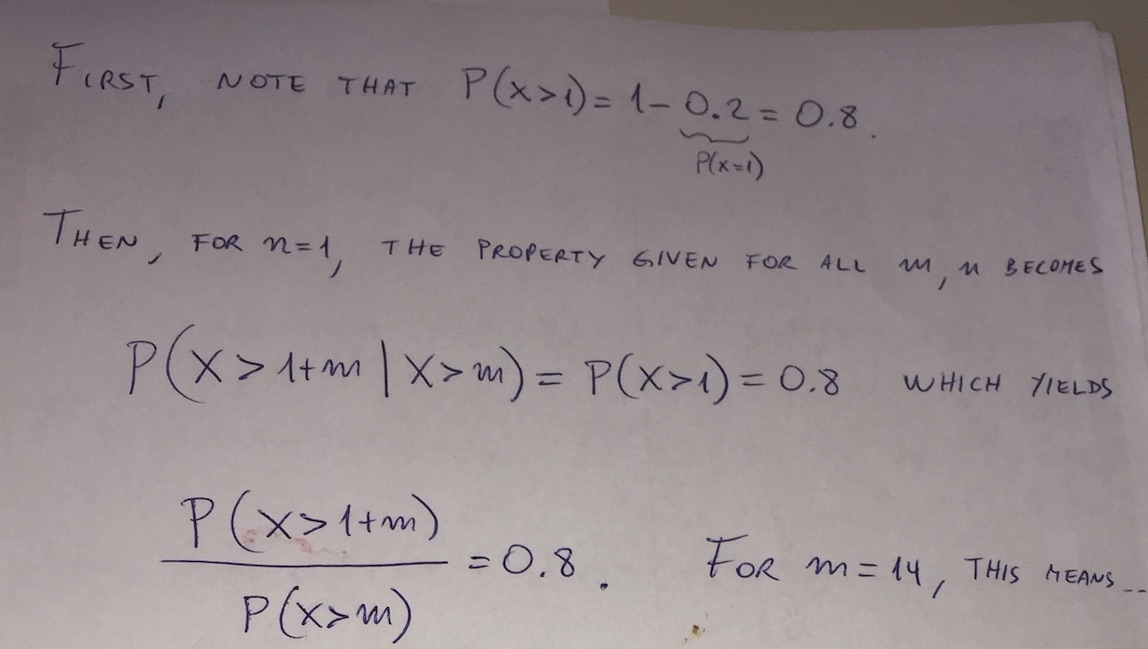 FIRST, NOTE THAT P(X>1) = 1 - 0.2 = 0.8.
P(X=1)
THEN, FOR n=1, THE PROPERTY GIVEN FOR ALL m, n BECOMES
P(X > 1+m | X > m) = P(X>1) = 0.8 WHICH YIELDS
P(X > 1+m)
= 0.8. FOR m = 14, THIS MEANS...
P(X>m)